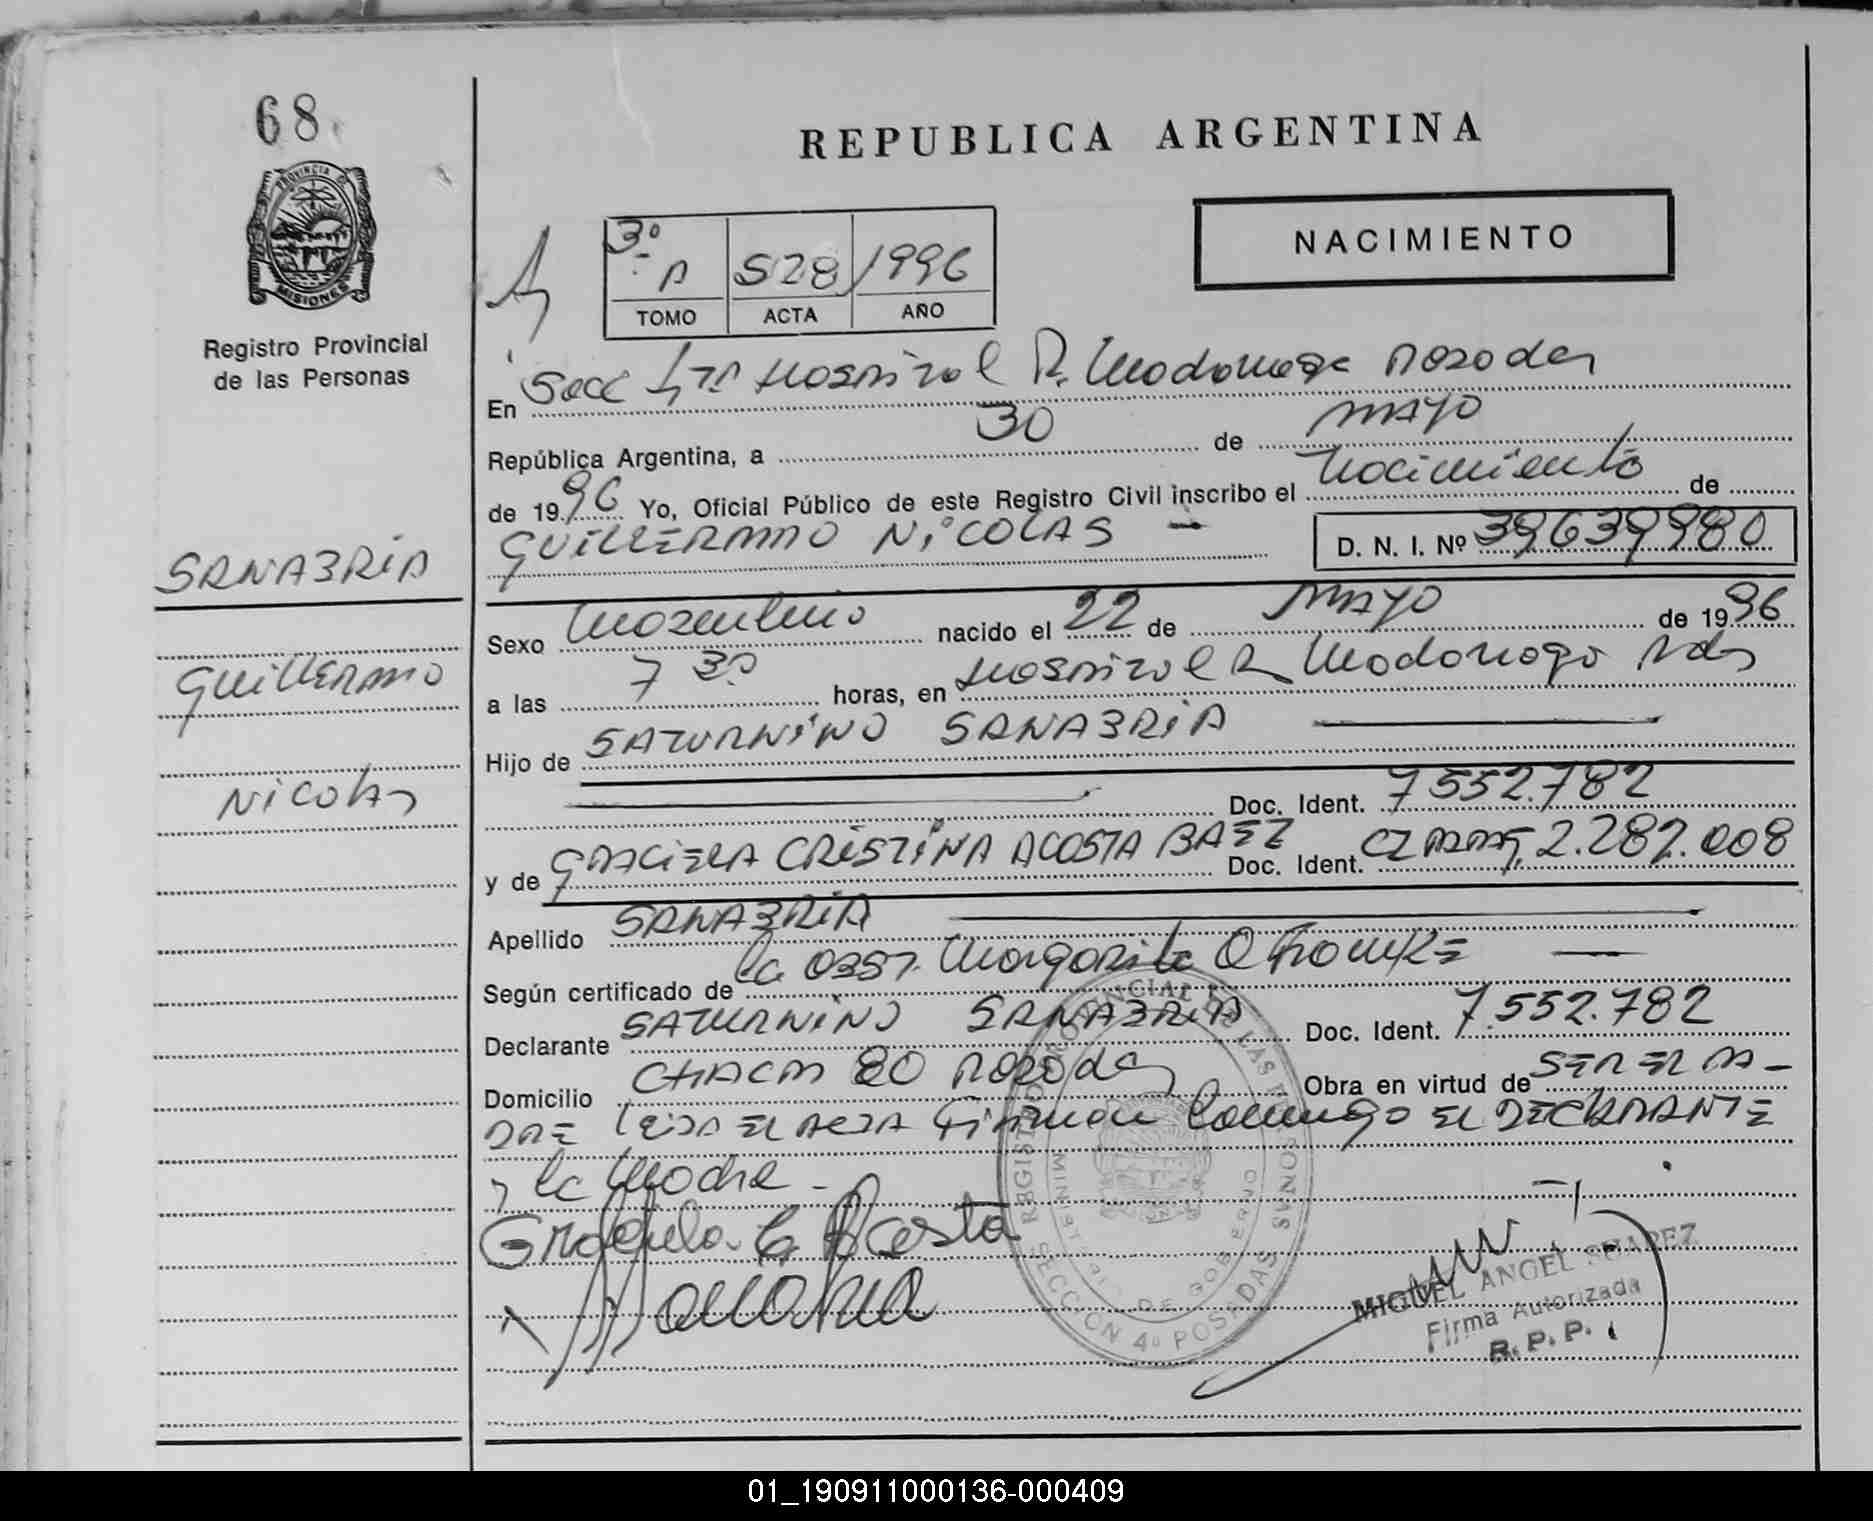 68
PROVINCIA D
MISIONES
Registro Provincial
de las Personas
SANABRIA
GUILLERMO
NICOLAS
REPUBLICA ARGENTINA
NACIMIENTO
3º A 528 1996
TOMO ACTA AÑO
En Secc 4ta Hospital R. Madariaga Posadas
República Argentina, a 30 de MAYO
de 1996 Yo, Oficial Público de este Registro Civil inscribo el Nacimiento de
GUILLERMO NICOLAS - D. N. I. Nº 39639980
Sexo Masculino nacido el 22 de MAYO de 1996
a las 7 30 horas, en Hospital R Madariaga Pdas
Hijo de SATURNINO SANABRIA
Doc. Ident. 7552.782
y de GRACIELA CRISTINA ACOSTA BAEZ Doc. Ident. 2.282.008
Apellido SANABRIA
Según certificado de la OBST. Margarita O
Declarante SATURNINO SANABRIA Doc. Ident. 7.552.782
Domicilio CHACRA 80 Posadas Obra en virtud de SER EL PA-
DRE LEIDA EL ACTA Firman Conmigo EL DECLARANTE
y la Madre -
Graciela C Acosta
Sanabria
REGISTRO PROVINCIAL DE LAS PERSONAS
MINISTERIO DE GOBIERNO
SECCION 4º POSADAS MISIONES
MIGUEL ANGEL SUAREZ
Firma Autorizada
R. P. P.
01_190911000136-000409